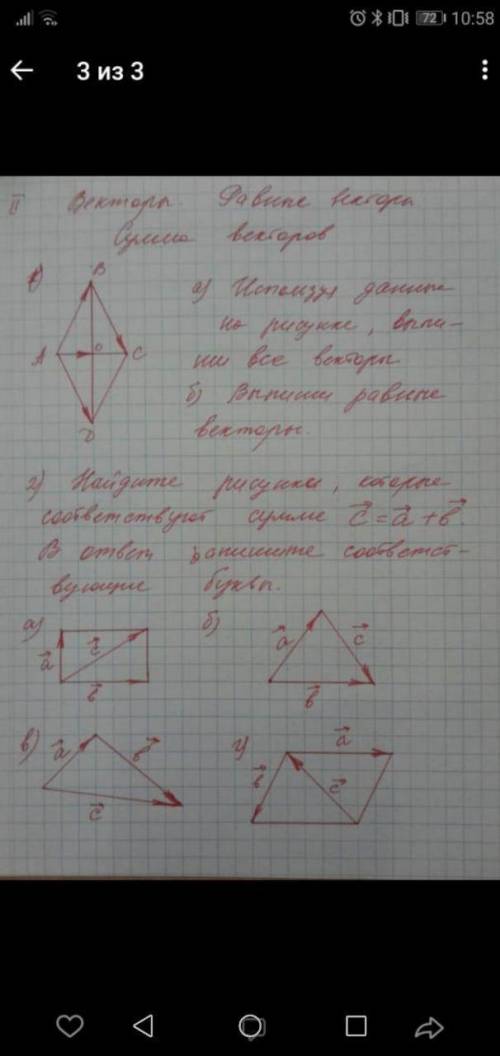 72 10:58
3 из 3
II Векторы. Равные векторы
Сумма векторов
1)
B
A O C
D
а) Используя данные
на рисунке, выпи-
ши все векторы
б) Выпиши равные
векторы.
2) Найдите рисунки, которые
соответствуют сумме c = a + b.
В ответ запишите соответст-
вующие буквы.
а) a c b
б) a c b
в) a b c
г) a b c